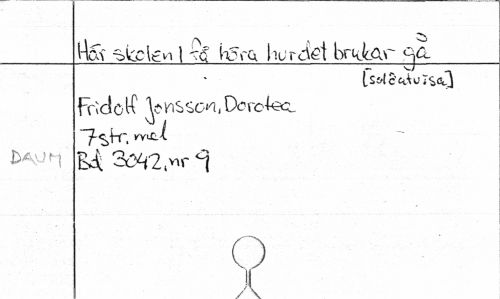 Här skolen I få höra hur det brukar gå
[soldatvisa]
Fridolf Jonsson, Dorotea
7 str, mel
DAUM Bd 3042, nr 9